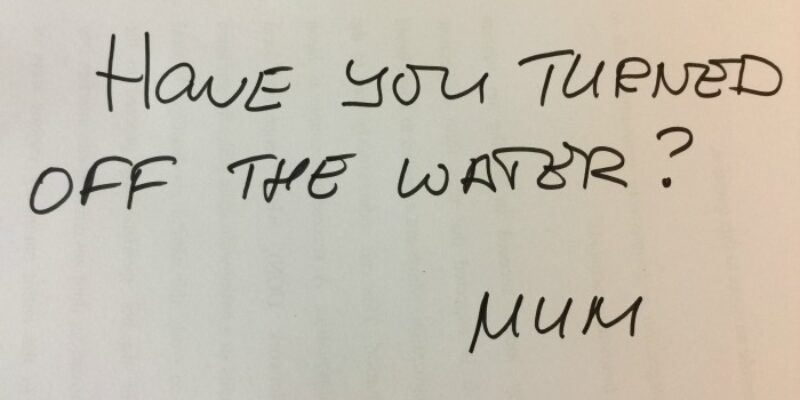 HAVE YOU TURNED
OFF THE WATER?
MUM